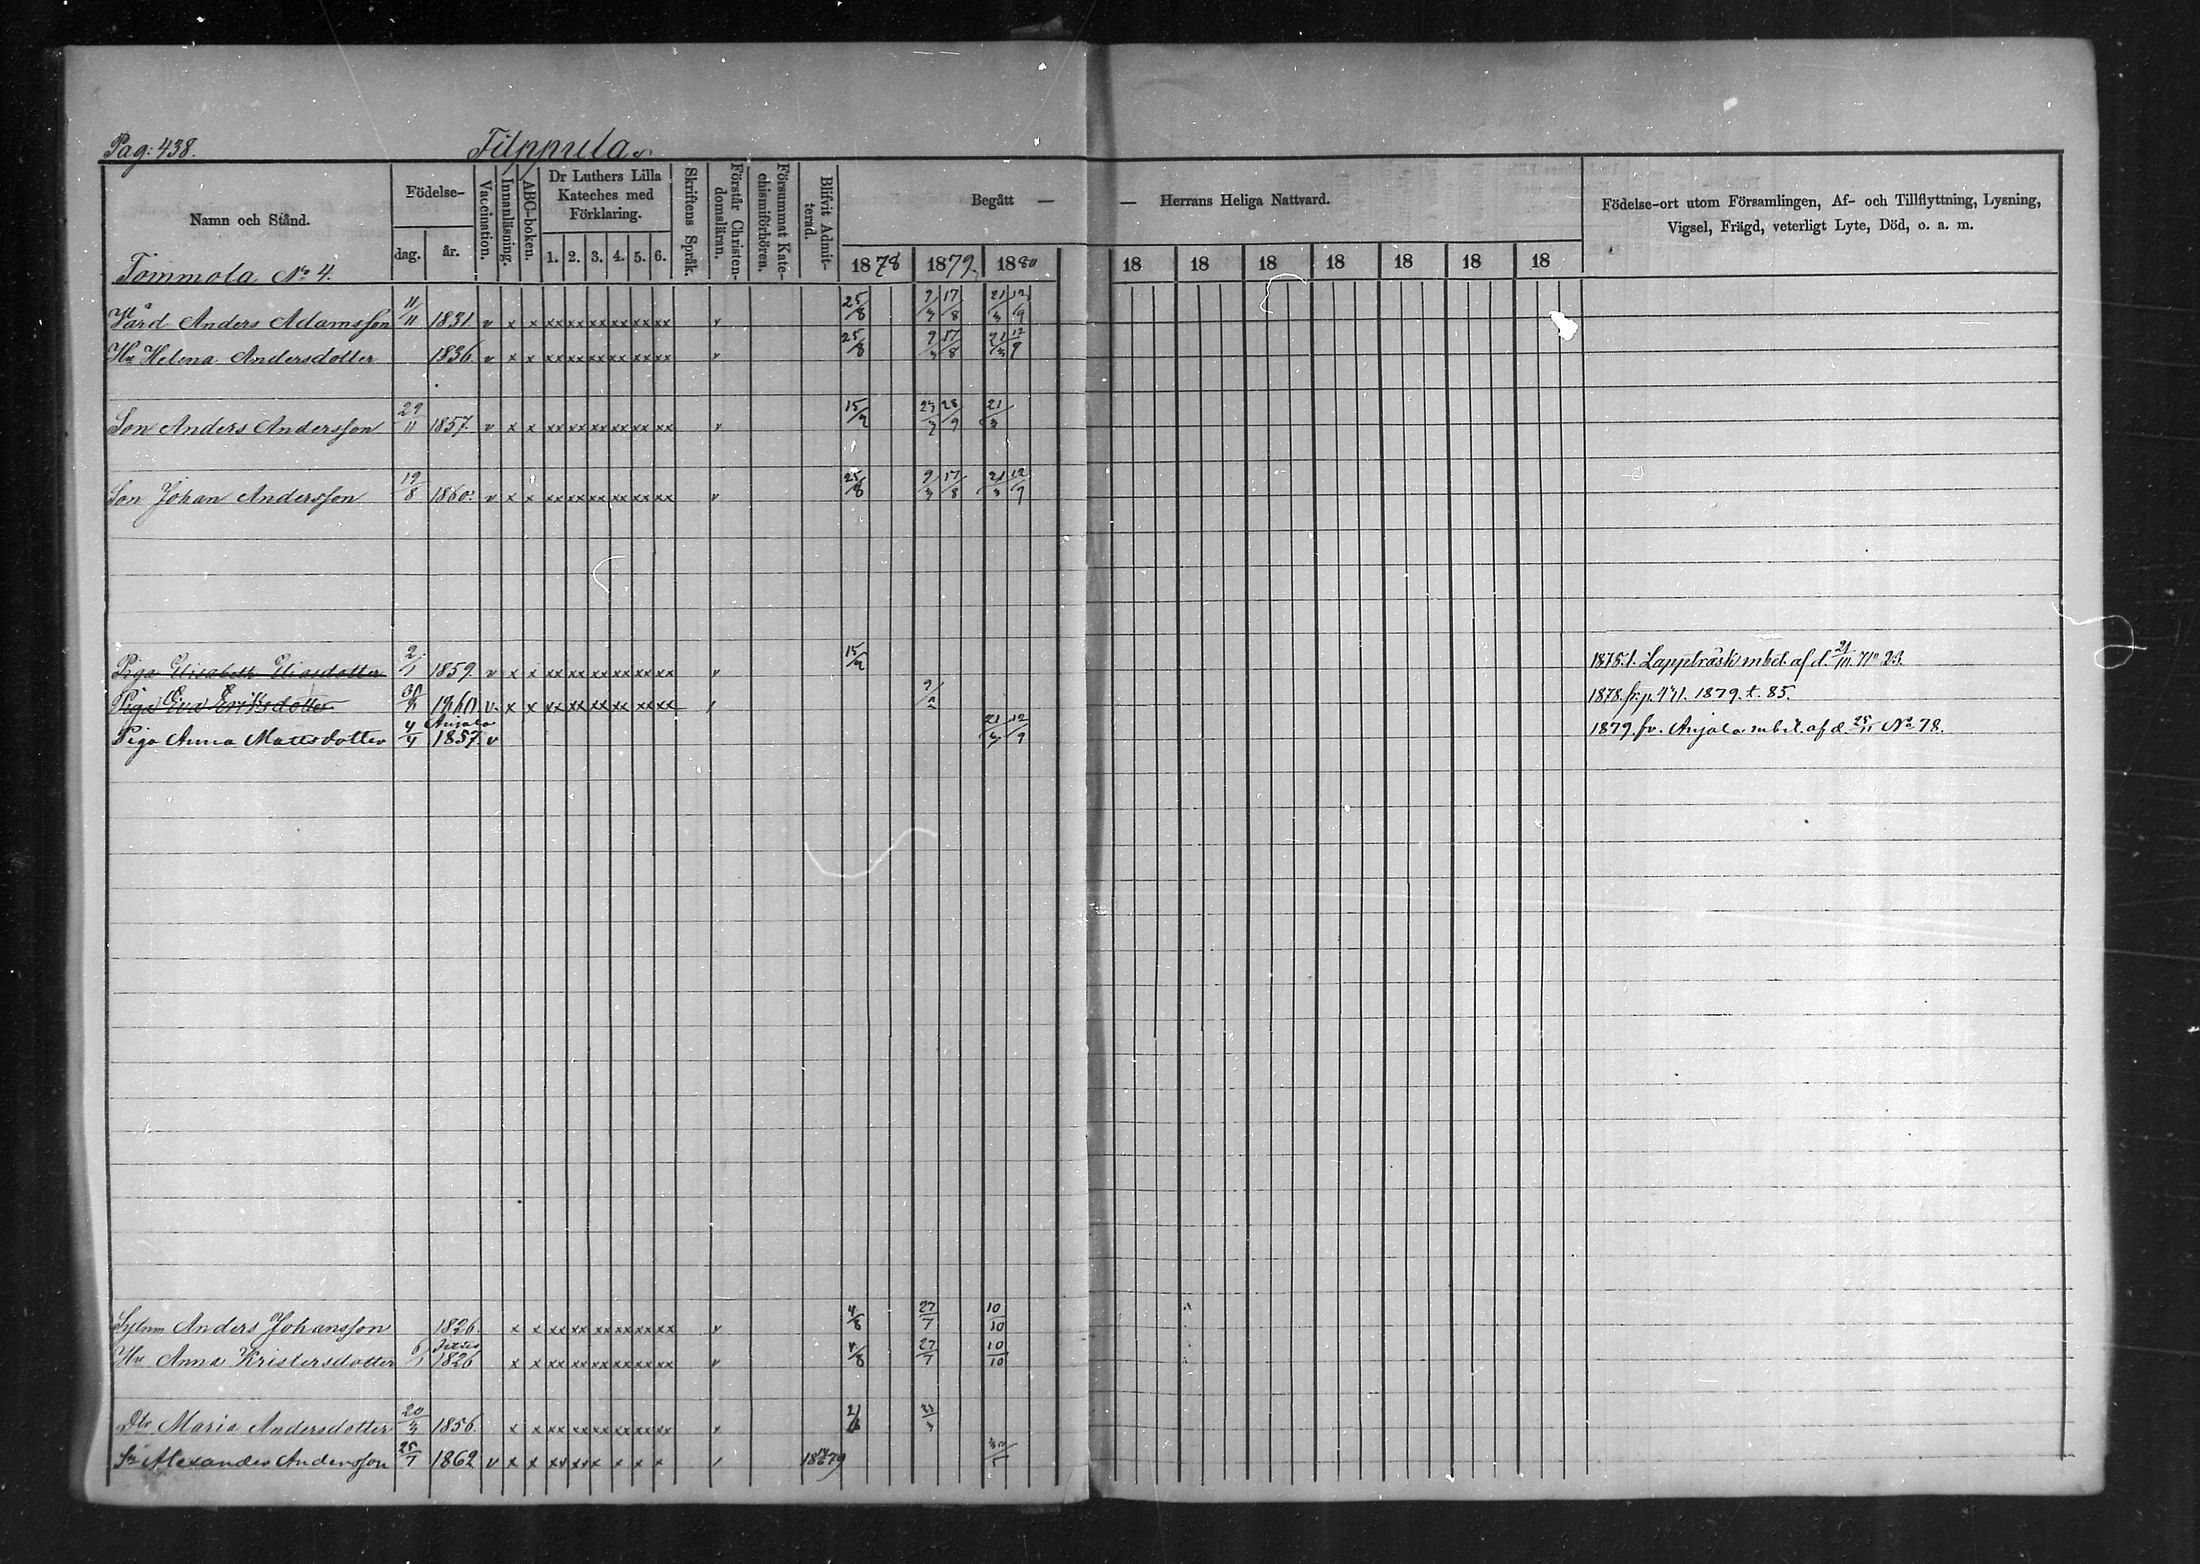 Pag: 438. Filppula.
Namn och Stånd. Födelse- dag. år. Vaccination. Innanläsning. ABC-boken. Dr Luthers Lilla Kateches med Förklaring. 1. 2. 3. 4. 5. 6. Skriftens Språk. Förstår Christendomsläran. Försummat Katechismiförhören. Blifvit Admitterad. Begått — — Herrans Heliga Nattvard. Födelse-ort utom Församlingen, Af- och Tillflyttning, Lysning, Vigsel, Frägd, veterligt Lyte, Död, o. a. m.
1878 1879. 1880 18 18 18 18 18 18 18
Tommola No 4.
Vård Anders Adamsson 11/11 1831. v x x xx xx xx xx xx xx v 25/8 9/3 17/8 21/3 12/9
Hu Helena Andersdotter 1836. v x x xx xx xx xx xx xx v 25/8 9/3 17/8 21/3 12/9
Son Anders Andersson 29/11 1857. v x x xx xx xx xx xx xx v 15/9 23/3 28/9 21/3
Son Johan Andersson 19/8 1860. v x x xx xx xx xx xx xx v 25/8 9/3 17/8 21/3 12/9
Piga Elisabeth Eliasdotter 2/1 1859. v x x xx xx xx xx xx xx v 15/9 1875. f. Lappträsk mbet. af d.
Piga Eva Eriksdotter 1860 v. x x xx xx xx xx xx xx 1878. fr. p. 471. 1879. t. 85.
Piga Anna Mattsdotter 4/4 Anjala 1857. v 21/3 12/9 1879. fr. Anjala mbet. af d 25/11 No 78.
Sytnm Anders Johansson 1826. x x xx xx xx xx xx xx v 4/8 27/7 10/10
Hu Anna Kristersdotter 6/1 1826 x x xx xx xx xx xx xx v 4/8 27/7 10/10
Dtr Maria Andersdotter 20/3 1856. x x xx xx xx xx xx xx v
Sn Alexander Andersson 25/7 1862 v x x xx xx x x x x 1879